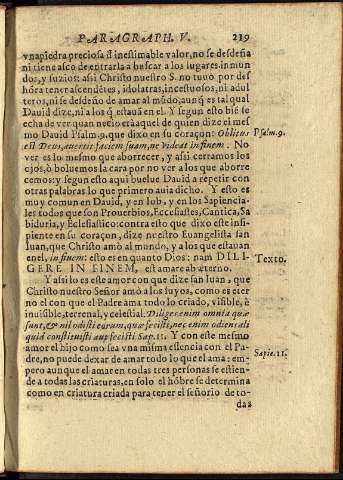 PARAGRAPH. V. 219
vna piedra preciosa d̃ inestimable valor, no se desdeña
ni tiene asco de entrarla a buscar a los lugares inmun
dos, y suzios: assi Christo nuestro S. no tuuo por des
hõra tener ascendẽtes, idolatras, incestuosos, ni adul
teros, ni se desdeño de amar al mũdo, aunq̃ es tal qual
Dauid dize, ni a los q̃ estauã en el. Y segun esto biẽ se
echa de ver quan necio era aquel de quien dize el mes
mo Dauid Psalm. 9. que dixo en su coraçon: Oblitus
Psalm. 9.
est Deus, auertit faciem suam, ne videat in finem. No
ver es lo mesmo que aborrecer, y assi cerramos los
ojos, ò boluemos la cara por no ver a los que aborre
cemos: y segun esto aqui buelue Dauid a repetir con
otras palabras lo que primero auia dicho. Y esto es
muy comun en Dauid, y en Iob, y en los Sapiencia-
les todos que son Prouerbios, Ecclesiastes, Cantica, Sa
biduria, y Eclesiastico: contra esto que dixo este insi-
piente en su coraçon, dize nuestro Euangelista san
Iuan, que Christo amò al mundo, y a los que estauan
en el, in finem: esto es en quanto Dios: nam DILI-
GERE IN FINEM, est amare ab æterno.
Texto.
Y assi lo es este amor con que dize san Iuan, que
Christo nuestro Señor amò a los suyos, como es eter
no el con que el Padre ama todo lo criado, visible, è
inuisible, terrenal, y celestial. Diliges enim omnia quæ
sunt, & nil odisti eorum, quæ fecisti, nec enim odiens ali
quid constituisti aut fecisti Sap. 11. Y con este mesmo
Sapie. 11.
amor el hijo como sea vna misma essencia con el Pa-
dre, no puede dexar de amar todo lo que el ama: em-
pero aunque el amar en todas tres personas se estien-
de a todas las criaturas, en solo el hõbre se determina
como en criatura criada para tener el señorio de to-
das